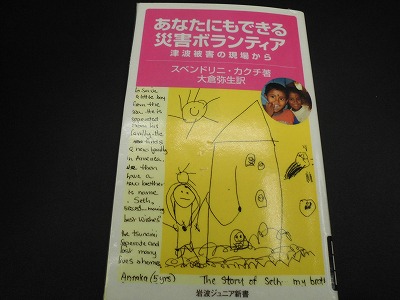 あなたにもできる
災害ボランティア
津波被害の現場から
スベンドリニ・カクチ著
大倉弥生訳
to save
a little boy
from the
sea. He is
separated
from his
family. He
finds
a new family
in America.
We then
have a
new brother
is name
Seth.
best wishes
the tsunami
separate and
lost many
lives & homes
Annaka (5 yrs)
The Story of Seth my
岩波ジュニア新書